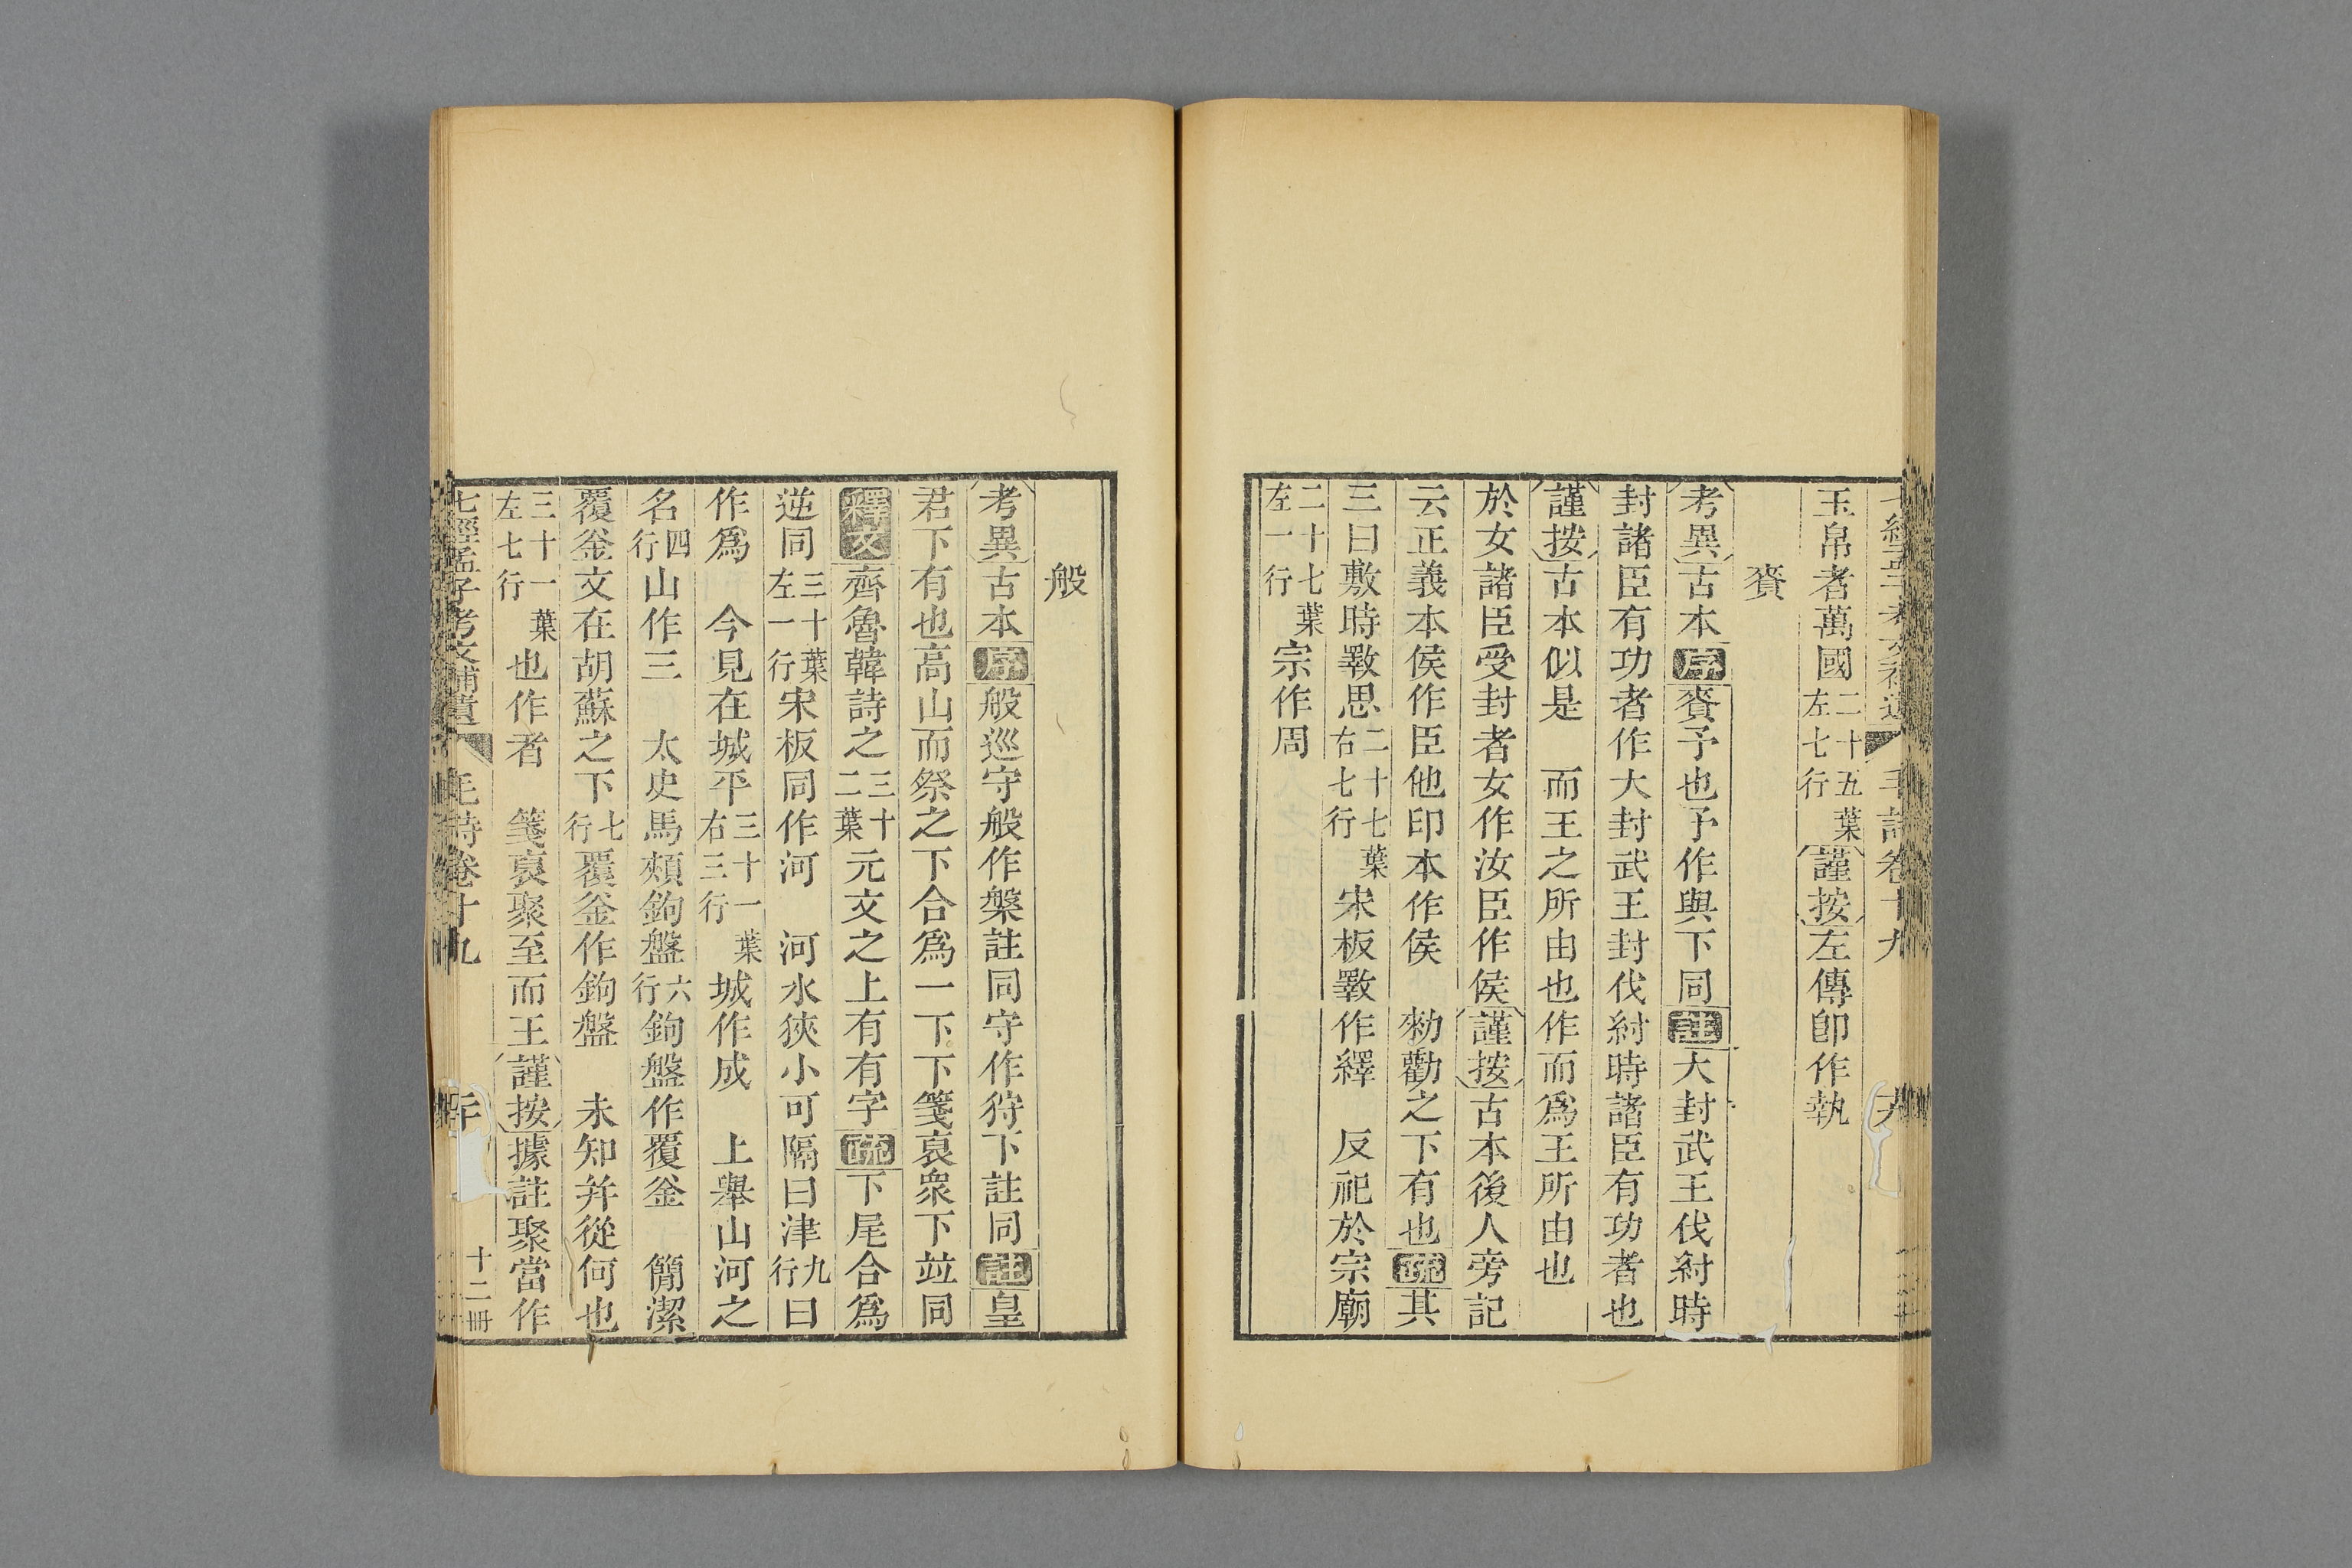 玉帛者萬國二十五葉左七行謹按左傳卽作執
賚
考異古本序賚予也予作與下同註大封武王伐紂時
封諸臣有功者作大封武王封伐紂時諸臣有功者也
謹按古本似是 而王之所由也作而爲王所由也
於女諸臣受封者女作汝臣作侯謹按古本後人旁記
云正義本侯作臣他印本作侯 勑勸之下有也疏其
三曰敷時斁思二十七葉右七行宋板斁作繹 反祀於宗廟
二十七葉左一行宗作周
般
考異古本序般巡守般作槃註同守作狩下註同註皇
君下有也高山而祭之下合爲一下下箋裒衆下竝同
釋文齊魯韓詩之三十二葉元文之上有有字疏下尾合爲
逆同三十葉左一行宋板同作河 河水狹小可隔曰津九行曰
作爲 今見在城平三十一葉右三行城作成 上舉山河之
名四行山作三 太史馬頰鉤盤六行鉤盤作覆釜 簡潔
覆釜文在胡蘇之下七行覆釜作鉤盤 未知幷從何也
三十一葉左七行也作者 箋裒聚至而王謹按據註聚當作
七經孟子考文補遺 毛詩卷十九 十二冊